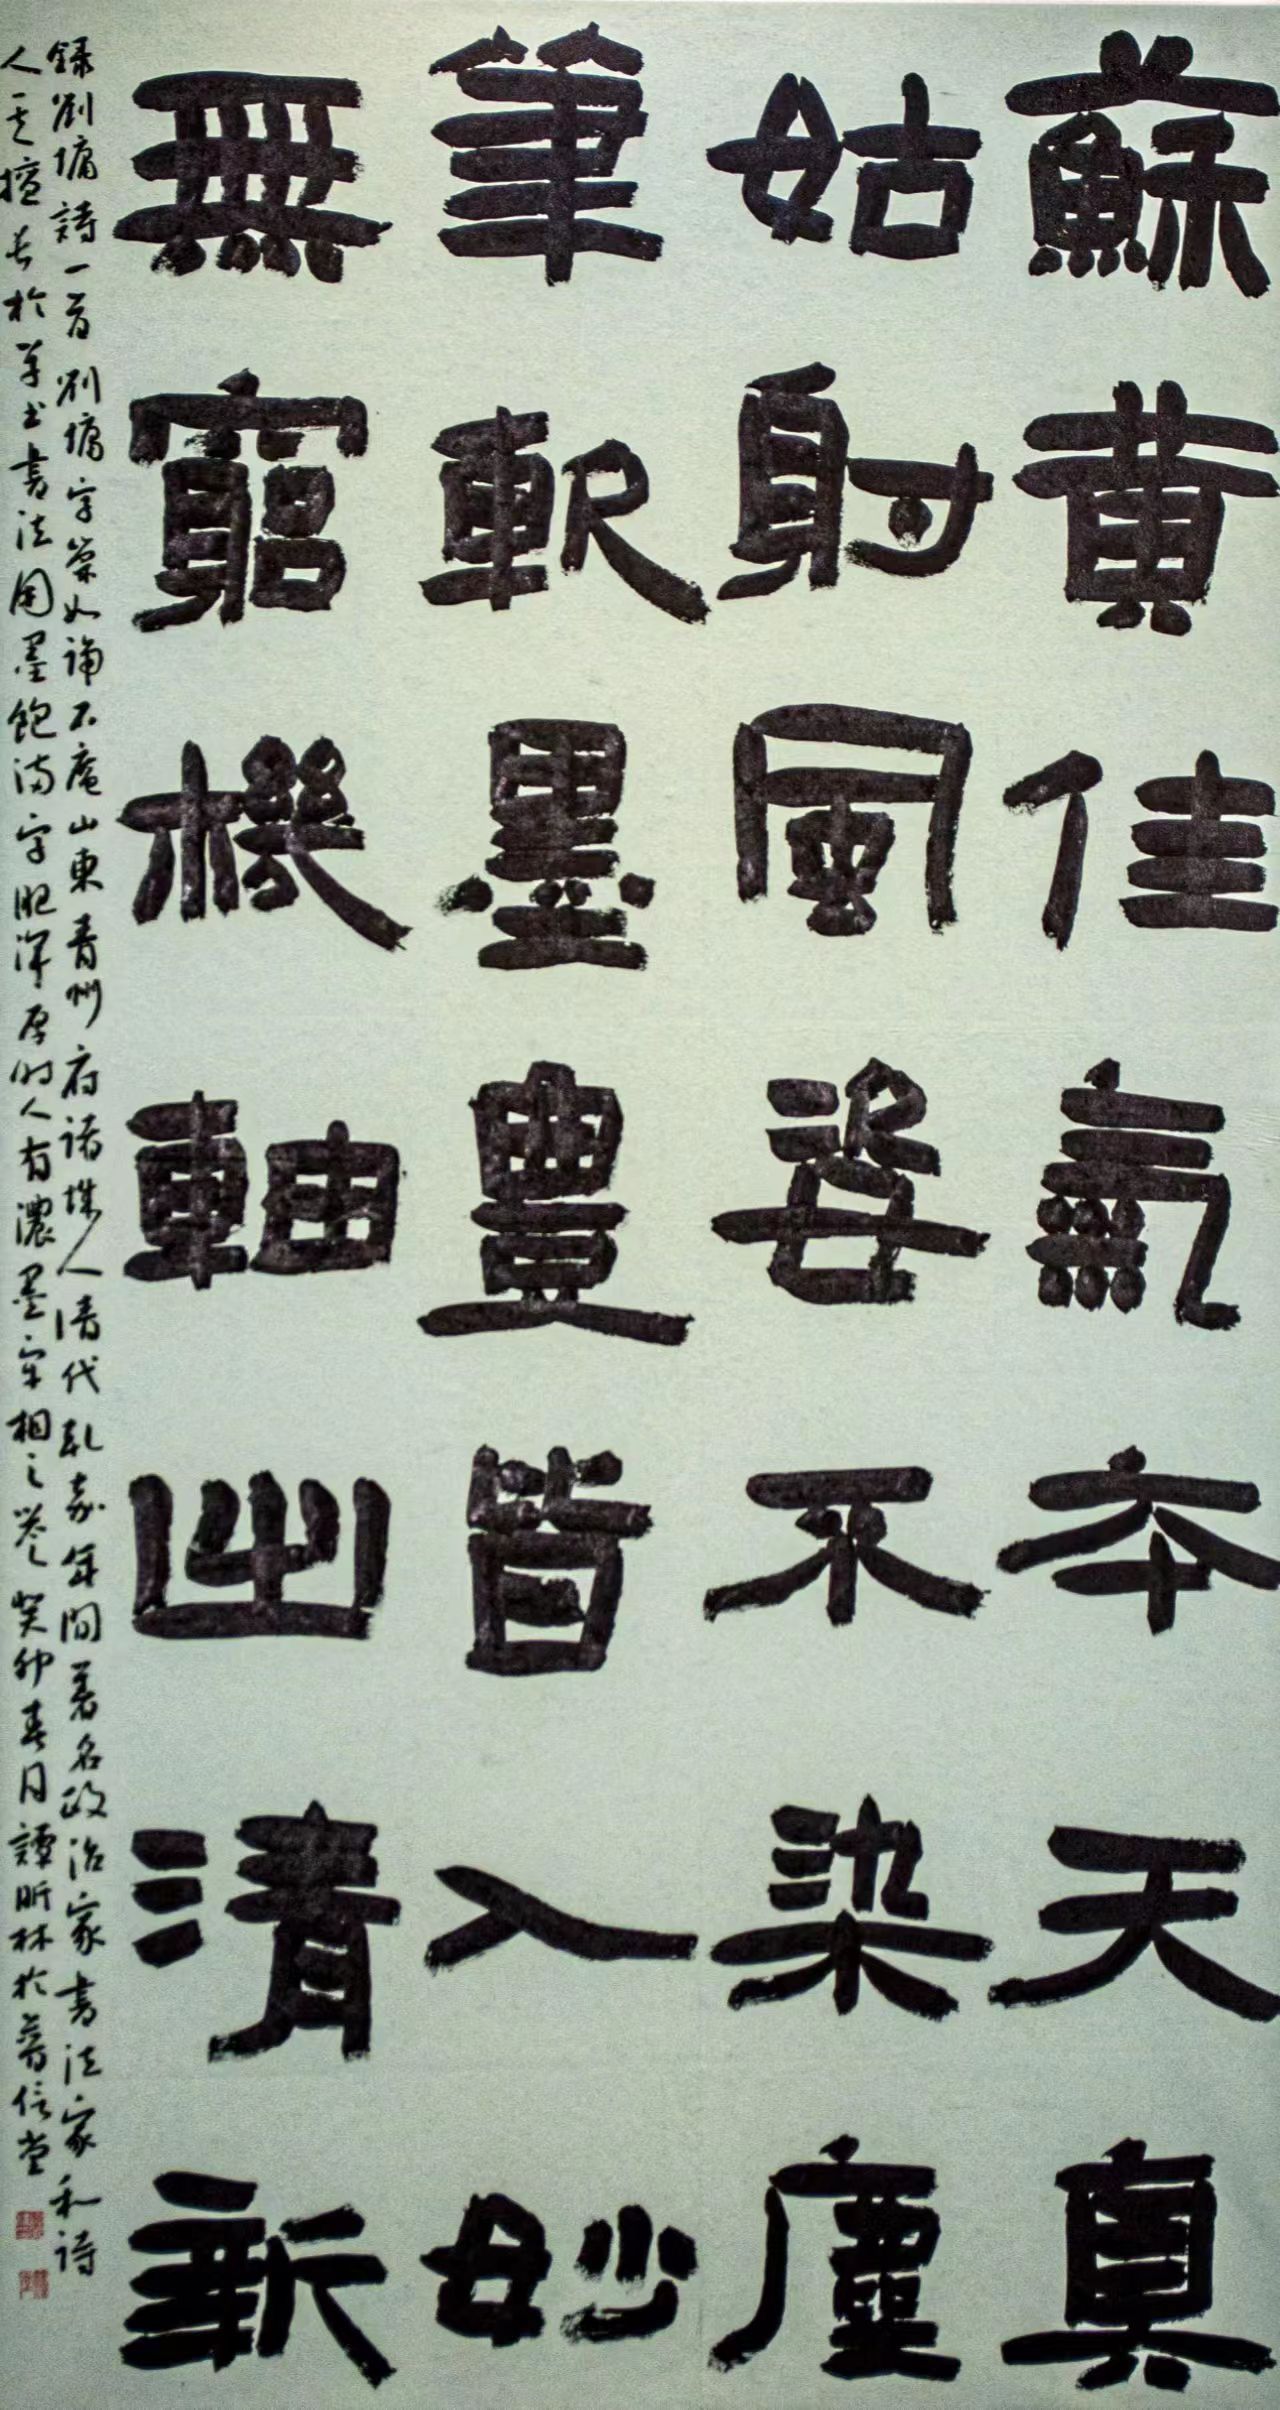 蘇黄佳氣本天真
姑射風姿不染塵
筆軟墨豐皆入妙
無窮機軸出清新
錄劉墉詩一首劉墉字崇如號石庵山東青州府諸城人清代乾嘉年間著名政治家書法家和詩
人其擅長於草書書法用墨飽滿字肥渾厚時人有濃墨宰相之譽癸卯春月譚昕林於普信堂